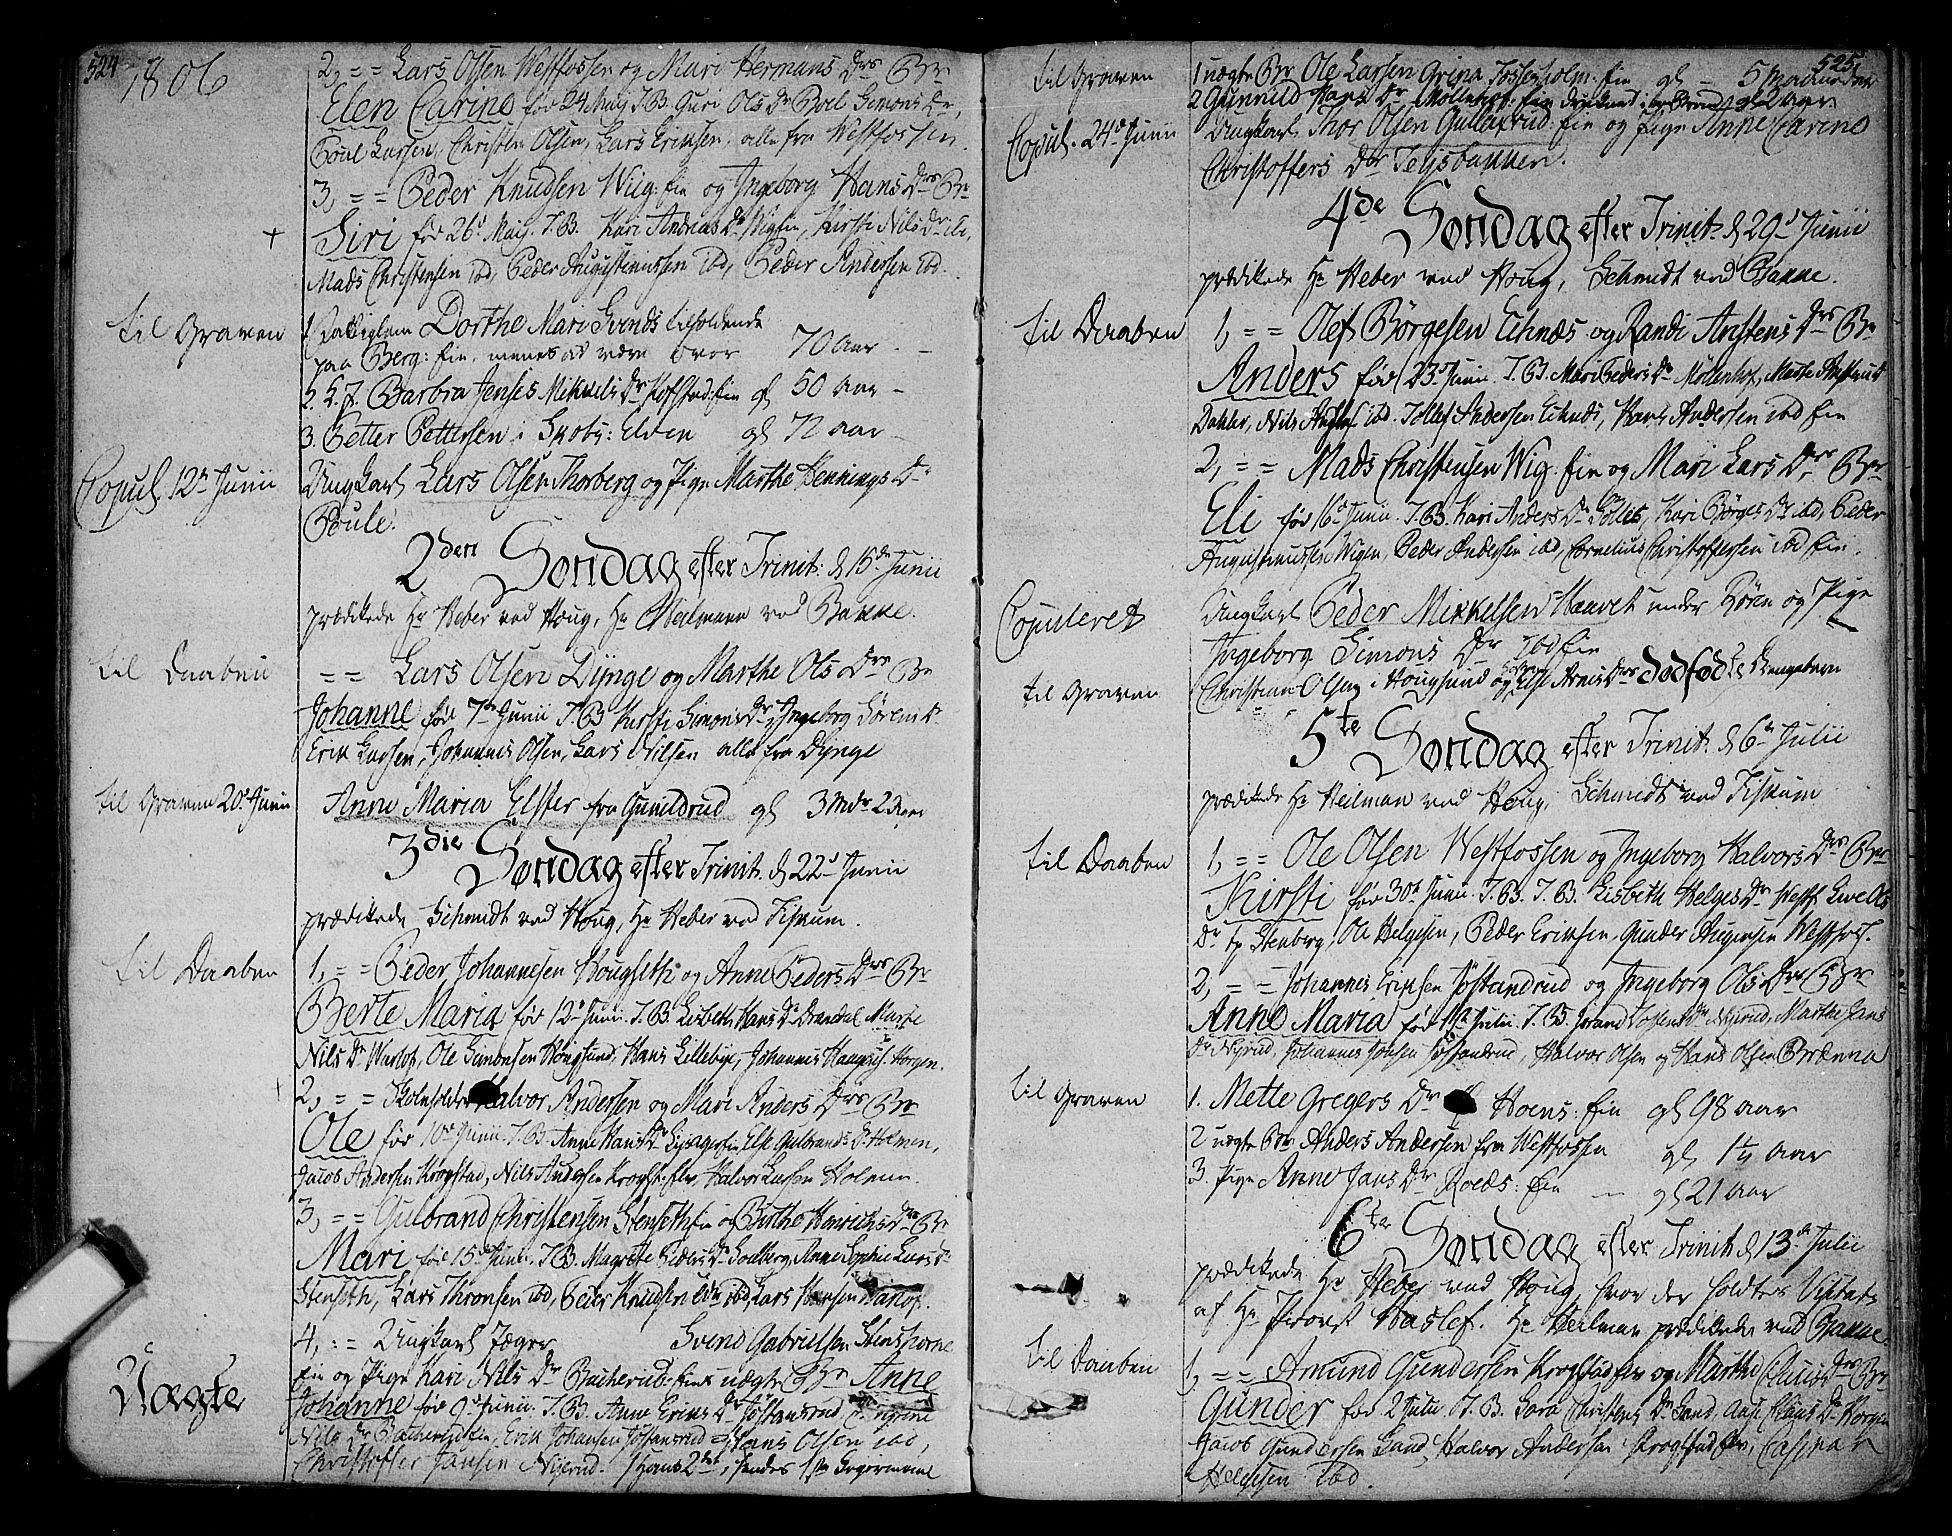 524
1806
2, = = Lars Olsen Westfossen og Mari Hermans Drs Br
Elen Carine fød 24 Maij T.B. Guri Ols Dr Boel Simons Dr,
Poul Larsen, Christen Olsen, Lars Eriksen, alle fra Westfossen.
3, = = Peder Knudsen Wiig: ein og Ingeborg Hans Drs Br
Siri fød 26 Maij. T.B. Kari Andreas Dr Wigen, Kirsti Nils Dr ib,
Mads Christensen ibd, Peder Augustinussen ibd, Peder Andersen ibd.
til Graven
1, Fattiglem Dorthe Mari Svends tilholdende
paa Berg: ein, menes at være over 70 Aar. -
2. Barbra Jenses Mikkels Dr Hofstad: ein gl 50 aar -
3. Petter Pettersen i Skots: Elven gl 72 aar -
Copul. 12te Junii
Ungkarl Lars Olsen Thorberg og Pige Marthe Hennings Dr
Boule.
2den Søndag efter Trinit: d 15de Junii
prædikede Hr Heber ved Houg, Hr Heilmann ved Bakke.
til Daaben
= = Lars Olsen Dynge og Marthe Ols Drs Br
Johanne fød 7de Junii T.B. Kirsti Simons Dr, Ingeborg Sørens Dr
Erik Larsen, Johannes Olsen, Lars Nilsen alle fra Dynge
til Graven 20d Junii
Anne Maria Elster fra Gunildrud gl 3 Mdr 2 Dage
3die Søndag efter Trinit. d 22d Junii
prædikede Schmidt ved Houg, Hr Heber ved Fiskum.
til Daaben
1, = = Peder Johannesen Hougseth og Anne Peders Drs Br
Berte Maria fød 12d Junii. T.B. Lisbeth Hans Dr Marte
Nils Dr Warlof, Ole Simonsen Hougsund, Hans Lillebye, Johannes Horgen.
2, = = Halvor Andersen og Mari Anders Drs Br
Ole fød 10d Junii. T.B. Anne Hans Dr Else Gulbrands Dr Holmen,
Jacob Andersen Krogstad, Nils Andersen Krogst: elv, Halvor Larsen Holmen.
3, = = Gulbrand Christensen Stenseth: ein og Birthe Henrichs Drs Br
Mari fød 15d Junii. T.B. Magrethe Peders Dr Solberg, Anne Sophie Lars Dr
Stenseth, Lars Thronsen ibd, Peder Knudsen ibd, Lars Hansen
4, = Ungkarl Jæger Svend Gabrielsen Stenshorne
ein og Pige Kari Nils Dr Bacherud: ein uægte Br Anne
Uægte
Johanne fød 9d Junii. T.B. Anne Eriks Dr Jøstansrud,
Nils Dr Bacherud ein, Erik Johansen Jøstansrud Hans Olsen ibd,
Christoffer Jansen Nijrud. Hans 2det, hendes 1ste Leiermaal
525
til Graven
1 uægte Br Ole Larsen gl - 5 Maaneder
2 Gunnild Hans Dr Møllenhof: ein gl 2 aar
Copul. 24d Junii
Ungkarl Thor Olsen Gullaxrud: ein og Pige Anne Carine
Christoffers Dr Teglsbakken.
4de Søndag efter Trinit: d 29d Junii
prædikede Hr Heber ved Houg, Schmidt ved Bakke.
til Daaben
1, = = Olef Børgesen Eknæs og Randi Anstens Drs Br
Anders fød 23d Junii. T.B. Mari Peders Dr Møllenhof, Marte
Dahler, Nils ibd. Tollef Andersen Eknæs, Hans Andersen ibd ein
2, = = Mads Christensen Wig: ein og Mari Lars Drs Br
Eli fød 16d Junii. T.B. Kari Anders Dr Kari Børges Dr ibd, Peder
Augustinussen Wigen, Peder Andersen ibd, Cornelius Christoffersen ibd ein.
Copuleret
Ungkarl Peder Mikkelsen Haavet under Føren og Pige
Ingeborg Simons Dr ibd ein
til Graven
Christian Olsen i Hougsund og Else Arnis Drs dødfødte Drengebarn
5te Søndag efter Trinit: d 6d Julii
prædikede Hr Heilman ved Houg, Schmidt ved Fiskum
til Daaben
1, = = Ole Olsen Westfossen og Ingeborg Halvors Drs Br
Kirsti fød 30d Junii. T.B. T.B. Lisbeth Helges Dr Westf. Live Ols
Dr Stenberg, Ole Helgesen, Peder Eriksen, Gunder Westfos.
2, = = Johannes Eriksen Jøstandrud og Ingeborg Ols Drs Br
Anne Maria fød 1ste Julii. T.B. Nijrud, Marthe Jans
Dr Nijrud, Johannes Jansen Jøstandrud, Halvor Olsen og Hans Olsen Brænna
til Graven
1. Mette Gregers Dr Hoens: ein gl 98 aar
2 uægte Br Anders Andersen fra Westfossen gl 1½ aar
3. Pige Anne Jans Dr Roeds: ein - gl 21 aar
6te Søndag efter Trinit. d 13d Julii
prædikede Hr Heber ved Houg, hvor der holdtes Visitats
af Hr Provst Haslef. Hr Heilman prædikede ved Bakke
til Daaben
1, = = Amund Gundersen Krogstad elv og Marthe Claus Drs Br
Gunder fød 2 Julii. T.B. Sara Christens Dr Sand, Aase Claus Dr Horgen
Jacob Gundersen Sand, Halvor Andersen Krogstad elv, Caspar
Helgesen ibd.